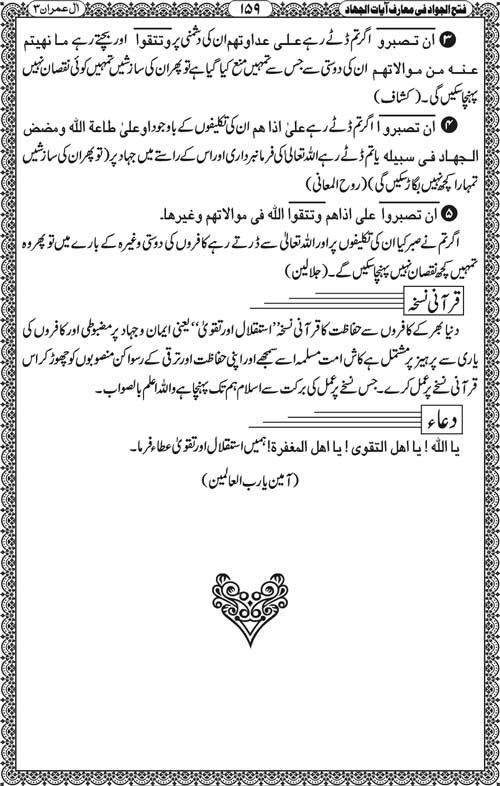 فتح الجواد فی معارف آیات الجهاد ۱۵۹ آل عمران ۳
۳ ان تصبروا اگر تم ڈٹے رہے علی عداوتهم ان کی دشمنی پر وتتقوا اور بچتے رہے ما نهيتم
عنه من موالاتهم ان کی دوستی سے جس سے تمہیں منع کیا گیا ہے تو پھر ان کی سازشیں تمہیں کوئی نقصان نہیں
پہنچا سکیں گی۔ (کشاف)
۴ ان تصبروا اگر تم ڈٹے رہے علی اذا هم ان کی تکلیفوں کے باوجود او علی طاعة الله ومضض
الجهاد فی سبیله یا تم ڈٹے رہے اللہ تعالیٰ کی فرمانبرداری اور اس کے راستے میں جہاد پر (تو پھر ان کی سازشیں
تمہارا کچھ نہیں بگاڑ سکیں گی) (روح المعانی)
۵ ان تصبروا علی اذاهم وتتقوا الله فی موالاتهم وغیرها۔
اگر تم نے صبر کیا ان کی تکلیفوں پر اور اللہ تعالیٰ سے ڈرتے رہے کافروں کی دوستی وغیرہ کے بارے میں تو پھر وہ
تمہیں کچھ نقصان نہیں پہنچا سکیں گے۔ (جلالین)
قرآنی نسخہ
دنیا بھر کے کافروں سے حفاظت کا قرآنی نسخہ ”استقلال اور تقویٰ“ یعنی ایمان و جہاد پر مضبوطی اور کافروں کی
یاری سے پرہیز پر مشتمل ہے کاش امت مسلمہ اسے سمجھے اور اپنی حفاظت اور ترقی کے رسوا کن منصوبوں کو چھوڑ کر اس
قرآنی نسخے پر عمل کرے۔ جس نسخے پر عمل کی برکت سے اسلام ہم تک پہنچا ہے واللہ اعلم بالصواب۔
دعاء
یا الله ! یا اهل التقوی ! یا اهل المغفرة! ہمیں استقلال اور تقویٰ عطاء فرما۔
(آمین یا رب العالمین)